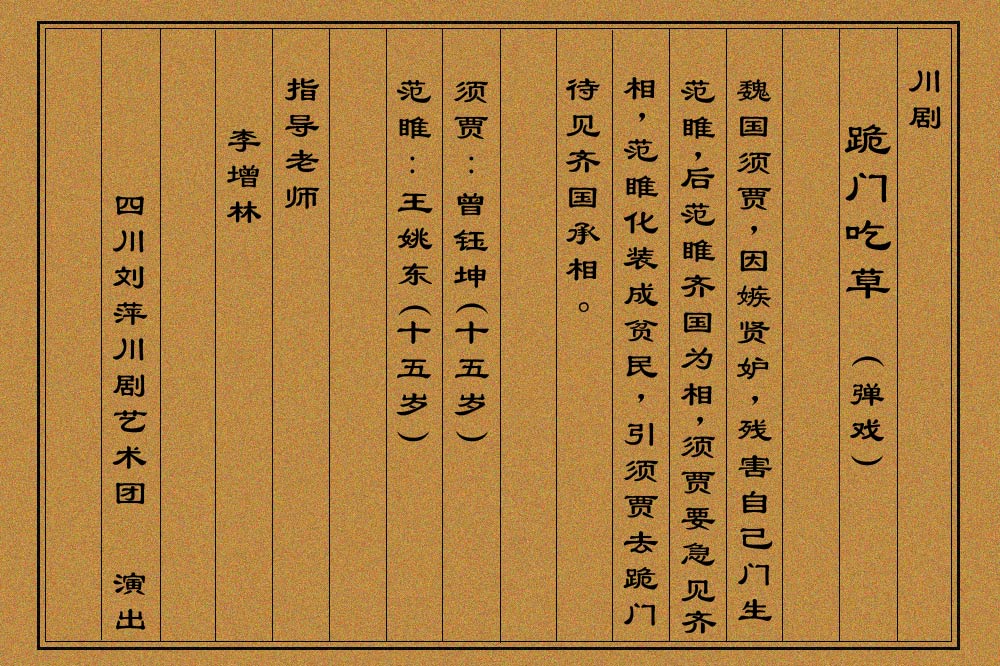 川剧
跪门吃草（弹戏）
魏国须贾，因嫉贤妒，残害自己门生
范睢，后范睢齐国为相，须贾要急见齐
相，范睢化装成贫民，引须贾去跪门
待见齐国承相。
须贾：曾钰坤（十五岁）
范睢：王姚东（十五岁）
指导老师
李增林
四川刘萍川剧艺术团 演出